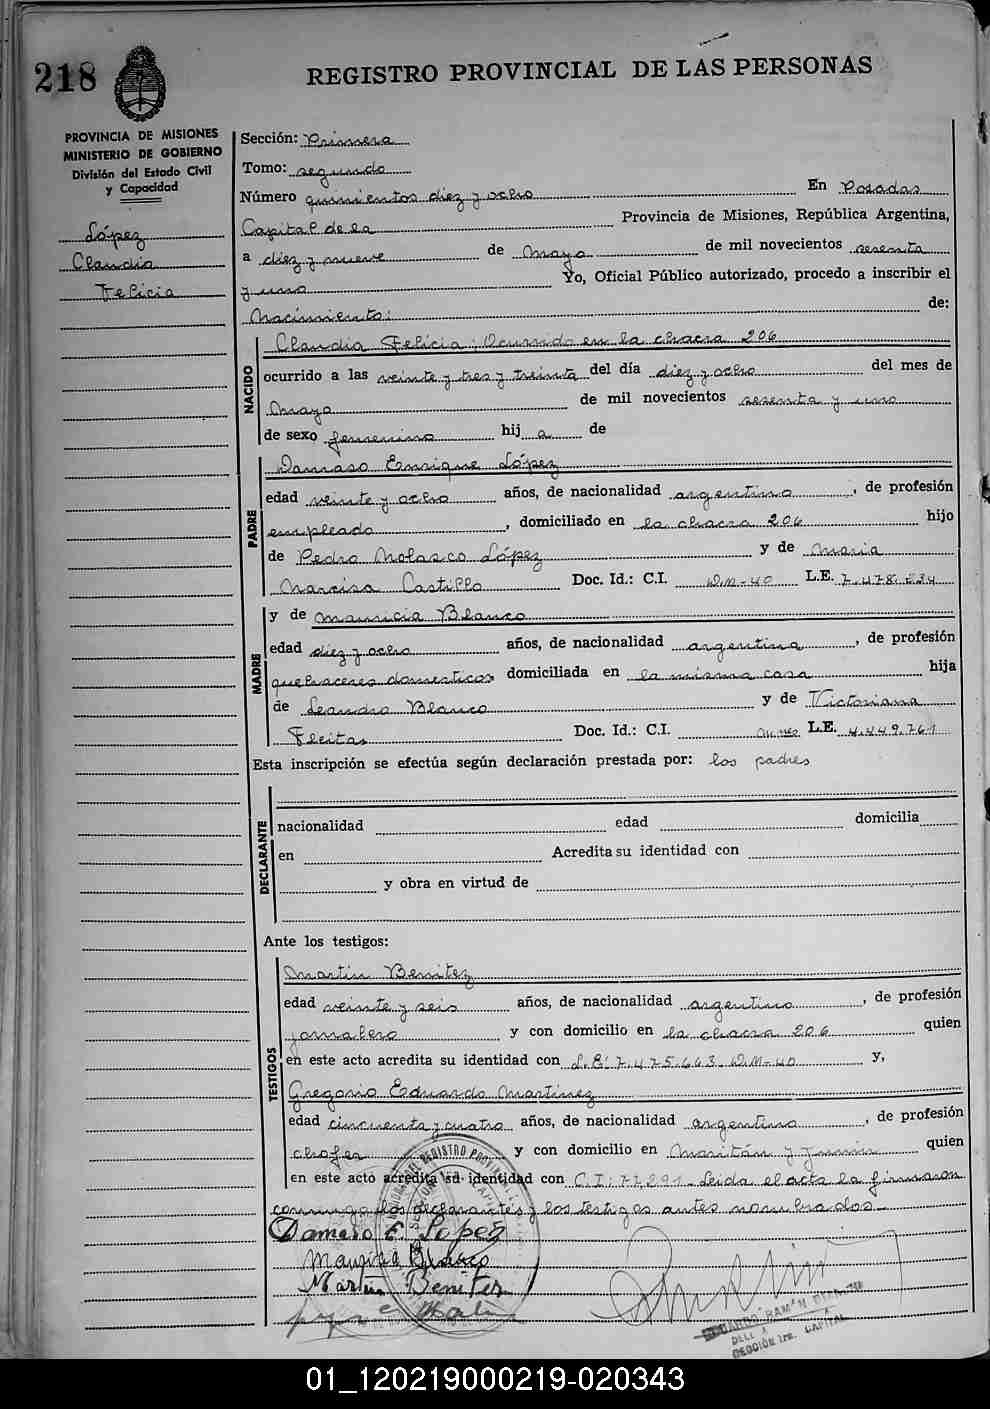 218
REGISTRO PROVINCIAL DE LAS PERSONAS
PROVINCIA DE MISIONES
MINISTERIO DE GOBIERNO
División del Estado Civil
y Capacidad
López
Claudia
Felicia
Sección: Primera
Tomo: segundo
Número quinientos diez y ocho En Posadas
Capital de la Provincia de Misiones, República Argentina,
a diez y nueve de Mayo de mil novecientos sesenta
y uno Yo, Oficial Público autorizado, procedo a inscribir el
Nacimiento: de:
NACIDO
Claudia Felicia; Ocurrido en la chacra 206
ocurrido a las veinte y tres y treinta del día diez y ocho del mes de
Mayo de mil novecientos sesenta y uno
de sexo femenino hij a de
PADRE
Damaso Enrique López
edad veinte y ocho años, de nacionalidad argentino, de profesión
empleado, domiciliado en la chacra 206 hijo
de Pedro Nolasco López y de Maria
Narcisa Castillo Doc. Id.: C.I. D.M-40 L.E. 7.478.234
MADRE
y de Mauricia Blanco
edad diez y ocho años, de nacionalidad argentina, de profesión
quehaceres domesticos domiciliada en la misma casa hija
de Leandro Blanco y de Victoriana
Fleitas Doc. Id.: C.I. L.E. 4.449.761
Esta inscripción se efectúa según declaración prestada por: los padres
DECLARANTE
nacionalidad edad domicilia
en Acredita su identidad con
y obra en virtud de
Ante los testigos:
TESTIGOS
Martin Benitez
edad veinte y seis años, de nacionalidad argentino, de profesión
jornalero y con domicilio en la chacra 206 quien
en este acto acredita su identidad con L.E: 7.475.663. D.M-40 y,
Gregorio Eduardo Martinez
edad cincuenta y cuatro años, de nacionalidad argentino, de profesión
chofer y con domicilio en Maritán y Junin quien
en este acto acredita su identidad con C.I: 77.291. Leida el acta la firmaron
conmigo los declarantes y los testigos antes nombrados.
Damaso E. Lopez
Mauricia Blanco
Martin Benitez
SECCIÓN 1ra. CAPITAL
01_120219000219-020343